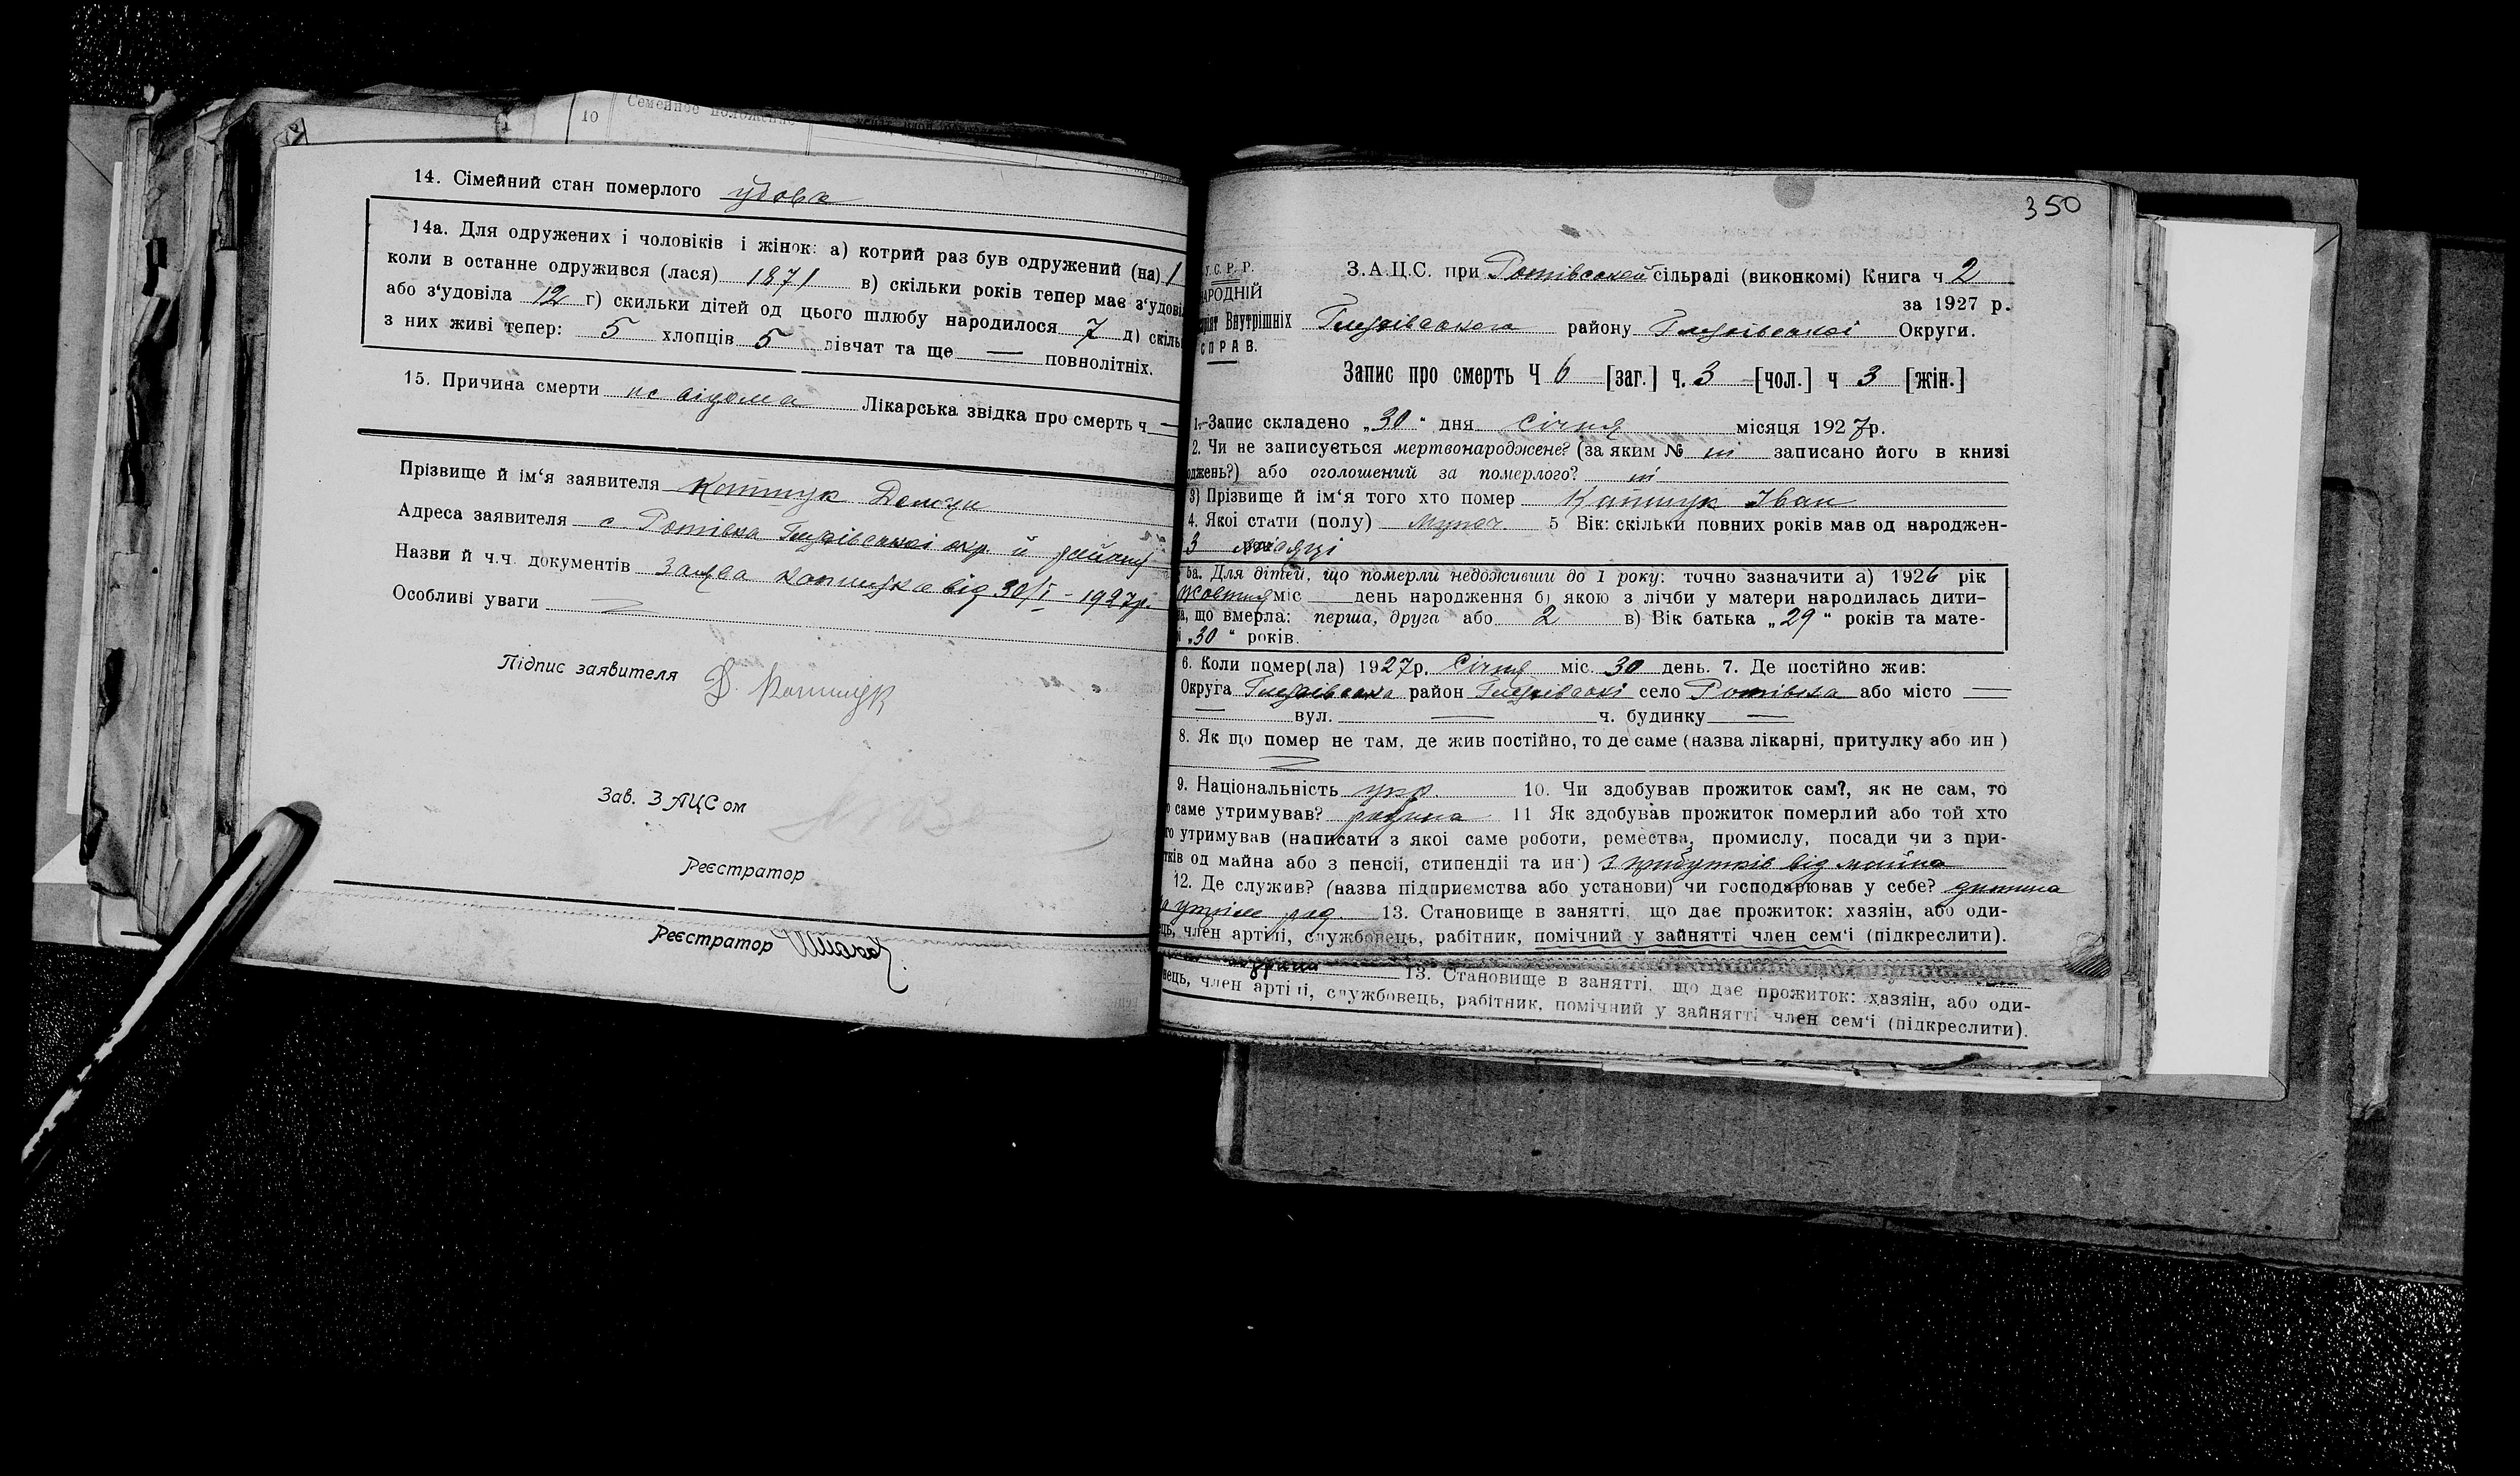 10
Семейное положение
14. Сімейний стан померлого удова
14а. Для одружених і чоловіків і жінок: а) котрий раз був одружений (на) 1
коли в останне одружився (лася) 1871 в) скільки років тепер має з‘удові
або з‘удовіла 12 г) скильки дітей од цього шлюбу народилося 7 д) скіль
з них живі тепер: 5 хлопців 5 дівчат та ще — повнолітніх.
15. Причина смерти не відома Лікарська звідка про смерть ч —
Прізвище й ім‘я заявителя Капшук
Адреса заявителя с. Ротівка Глухівської окр. й району
Назви й ч.ч. документів Заява Капшука від 30/I - 1927р.
Особливі уваги
Підпис заявителя Д. Капшук
Зав. ЗАЦСом
Реєстратор
Реєстратор
350
У.С.Р.Р.
НАРОДНІЙ
Внутрішніх
СПРАВ.
З.А.Ц.С. при Ротівській сільраді (виконкомі) Книга ч 2
за 1927 р.
Глухівського району Глухівської Округи.
Запис про смерть Ч 6 [заг.] ч. 3 [чол.] ч 3 [жін.]
1. Запис складено „30“ дня Січня місяця 1927р.
2. Чи не записується мертвонароджене? (за яким № ні записано його в книзі
оджень?) або оголошений за померлого? ні
3) Прізвище й ім‘я того хто помер Капшук Іван
4. Якої стати (полу) Мужоч. 5 Вік: скільки повних років мав од народжен-
3 місяці
5а. Для дітей, що померли недоживши до 1 року: точно зазначити а) 1926 рік
Жовтня міс день народження б) якою з лічби у матери народилась дити-
на, що вмерла: перша, друга або 2 в) Вік батька „29“ років та мате-
рі „30“ років.
6. Коли помер(ла) 1927р. Січня міс. 30 день. 7. Де постійно жив:
Округа Глухівська район Глухівські село Ротівка або місто —
— вул. — ч. будинку —
8. Як що помер не там, де жив постійно, то де саме (назва лікарні, притулку або ин)
9. Національність укр. 10. Чи здобував прожиток сам?, як не сам, то
о саме утримував? родина 11 Як здобував прожиток померлий або той хто
го утримував (написати з якоі саме роботи, ремества, промислу, посади чи з при-
тків од майна або з пенсіі, стипендіі та ин) з прибутків від майна
12. Де служив? (назва підприємства або установи) чи господарював у себе? дитина
на утрім. род. 13. Становище в занятті, що дає прожиток: хазяін, або оди-
ць, член артілі, службовець, рабітник, помічний у зайнятті член сем‘і (підкреслити).
13. Становище в занятті, що дає прожиток: хазяін, або оди-
нець, член артілі, службовець, рабітник, помічний у зайнятті член сем‘і (підкреслити).